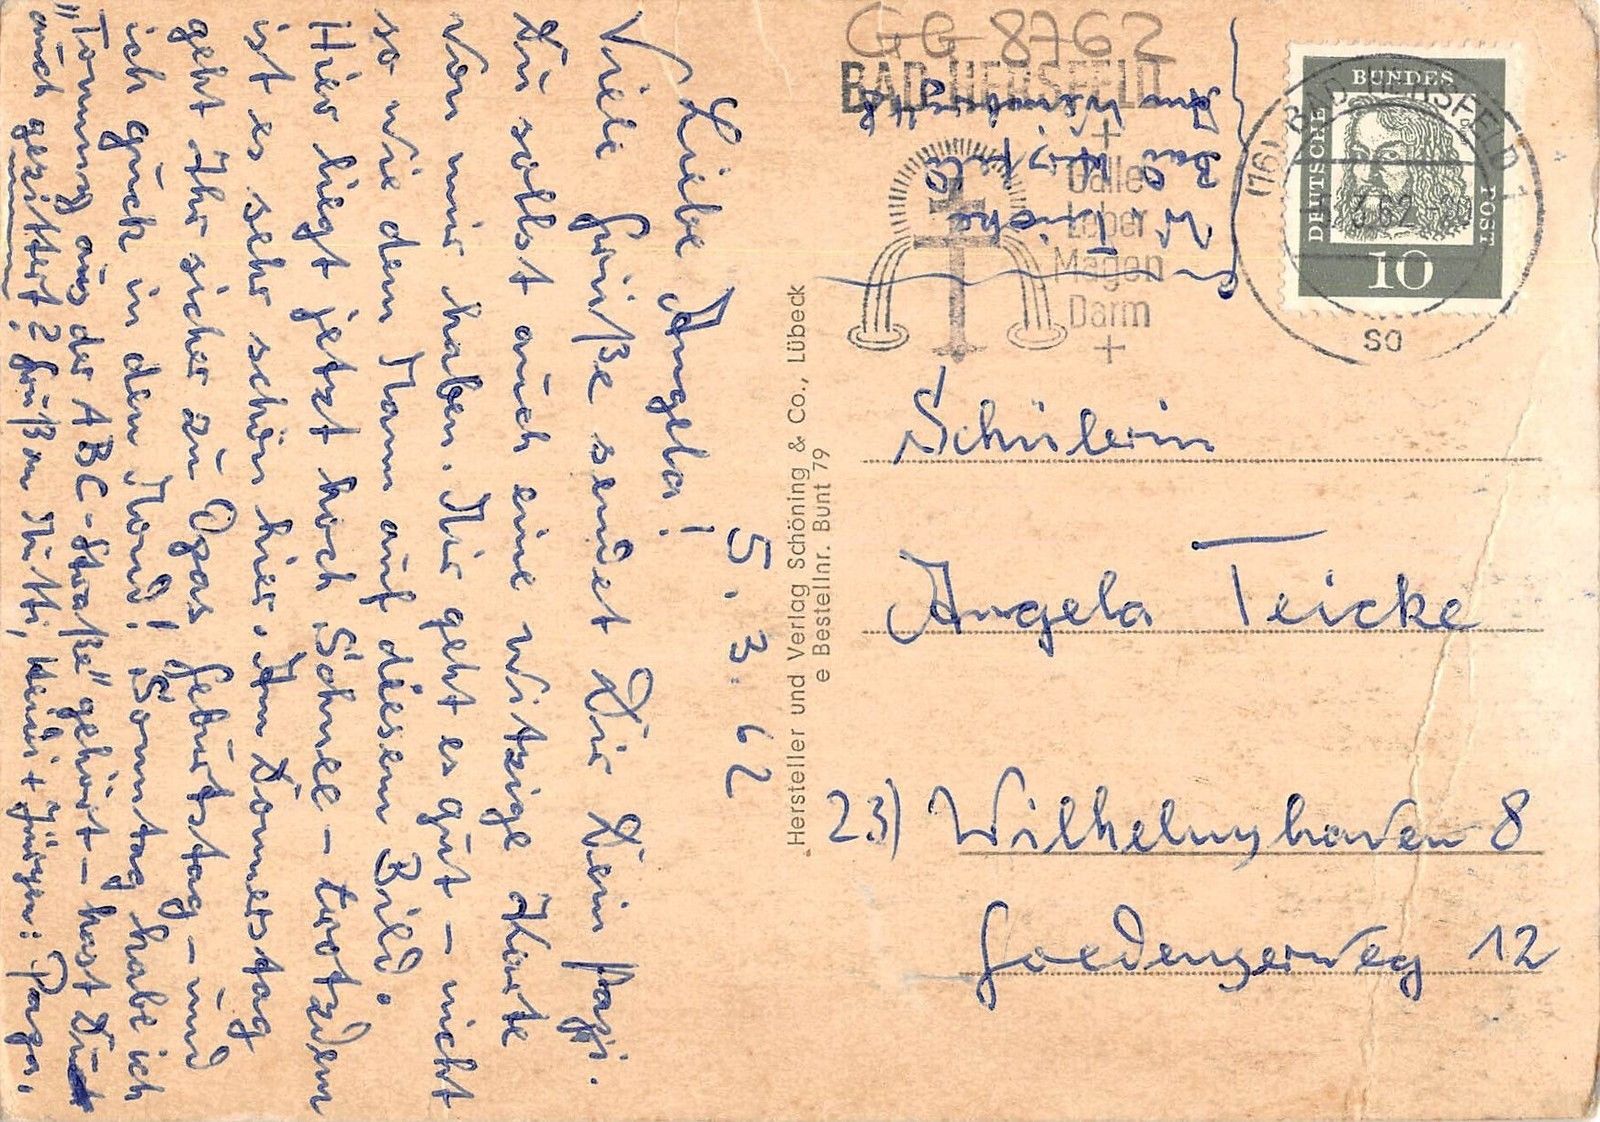 5. 3. 62
Liebe Angela!
Viele Grüße sendet Dir Dein Pappi.
Du sollst auch eine witzige Karte
von mir haben. Mir geht es gut – nicht
so wie dem Mann auf diesem Bild.
Hier liegt jetzt hoch Schnee – trotzdem
ist es sehr schön hier. Am Donnerstag
geht Ihr sicher zu Opas Geburtstag – und
ich guck in den Mond! Sonntag habe ich
"Tommy aus der ABC-Straße" gehört – hast Du
auch gezittert? Grüß an Mutti, Heidi + Jürgen: Papa.
Hersteller und Verlag Schöning & Co., Lübeck
e Bestellnr. Bunt 79
GG 8762
BAD HERSFELD
+
Galle
Leber
Magen
Darm
+
W. Teicke
Bad Hersfeld
Am
(16) BAD HERSFELD 1
3.62
so
DEUTSCHE BUNDESPOST
10
Schülerin
Angela Teicke
23) Wilhelmshaven 8
Goedenserweg 12